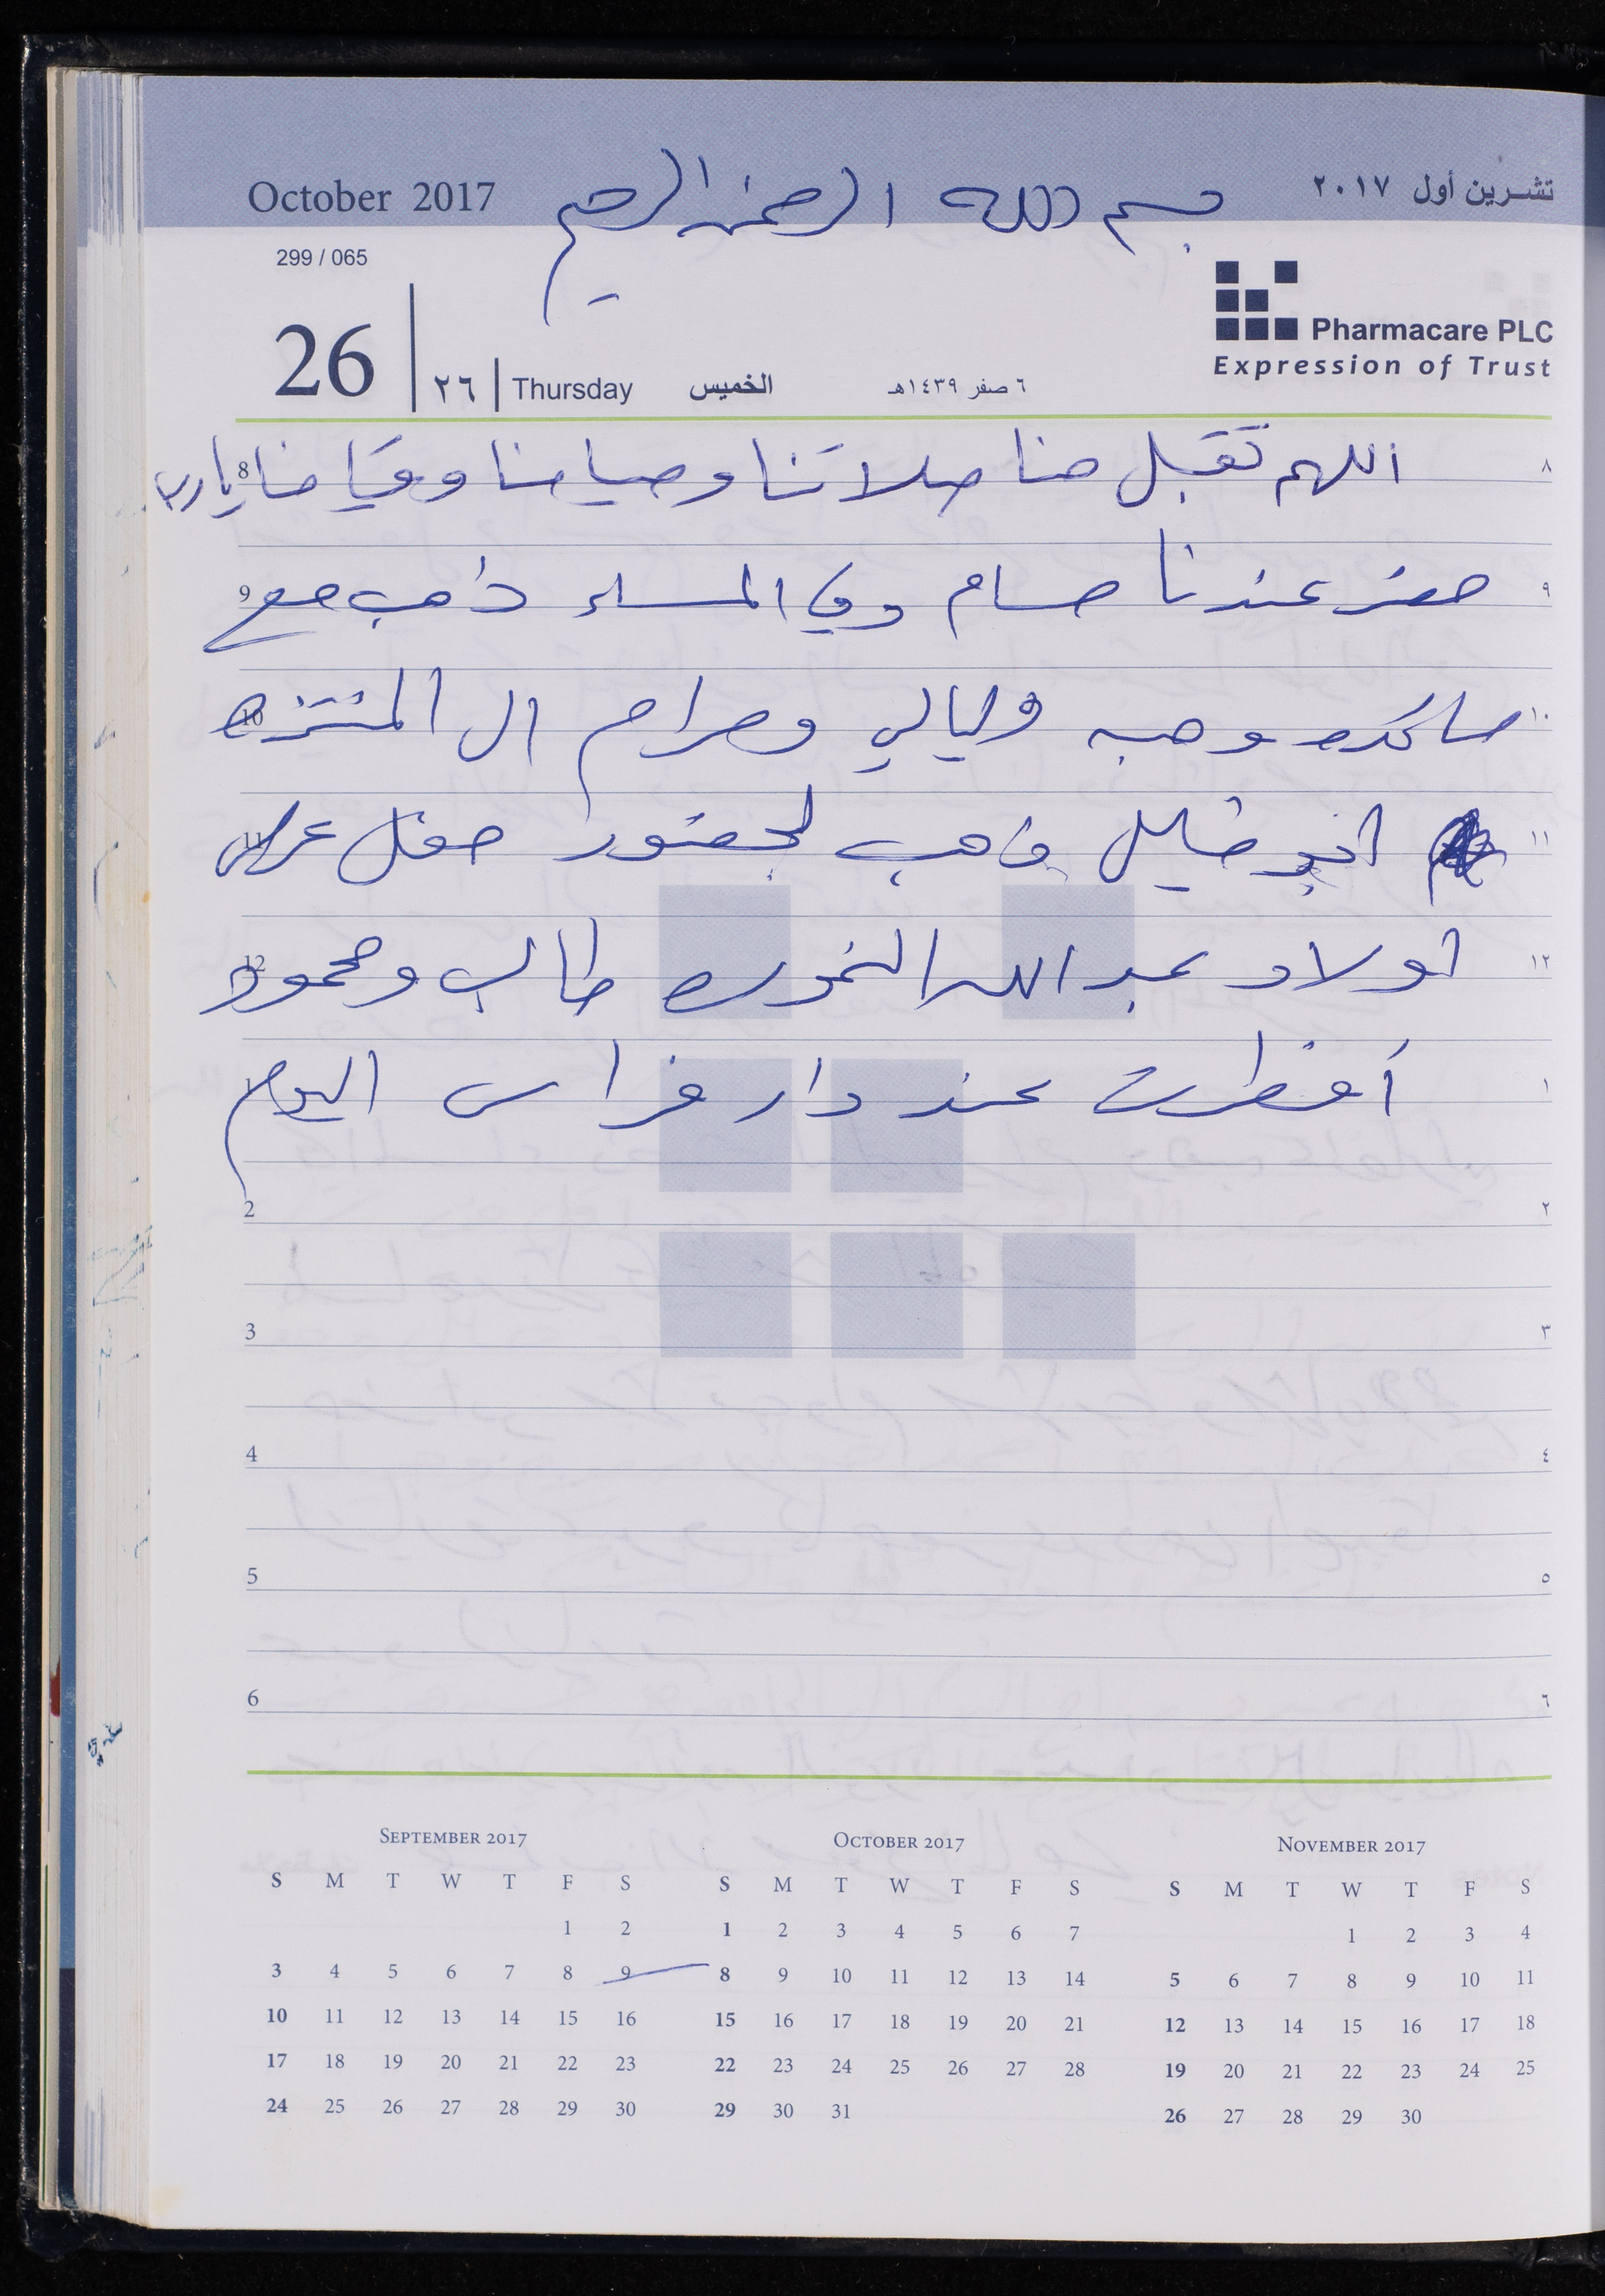 October 2017 بسم الله الرحمن الرحيم تشرين أول ٢٠١٧
299 / 065
Pharmacare PLC
Expression of Trust
26 ٢٦ Thursday الخميس ٦ صفر ١٤٣٩هـ
8 اللهم تقبل منا صلاتنا وصيامنا وقيامنا يارب ٨
9 حضر عندنا حسام وفي المساء ذهب مع ٩
10 وليالي ومرام الى المنتزه ١٠
11 ابو خليل ذاهب لحضور حفل عرس ١١
12 اولاد عبد الله طالب ومحمود ١٢
1 أفطرت عند دار فراس اليوم ١
2 ٢
3 ٣
4 ٤
5 ٥
6 ٦
September 2017
S M T W T F S
1 2
3 4 5 6 7 8 9
10 11 12 13 14 15 16
17 18 19 20 21 22 23
24 25 26 27 28 29 30
October 2017
S M T W T F S
1 2 3 4 5 6 7
8 9 10 11 12 13 14
15 16 17 18 19 20 21
22 23 24 25 26 27 28
29 30 31
November 2017
S M T W T F S
1 2 3 4
5 6 7 8 9 10 11
12 13 14 15 16 17 18
19 20 21 22 23 24 25
26 27 28 29 30